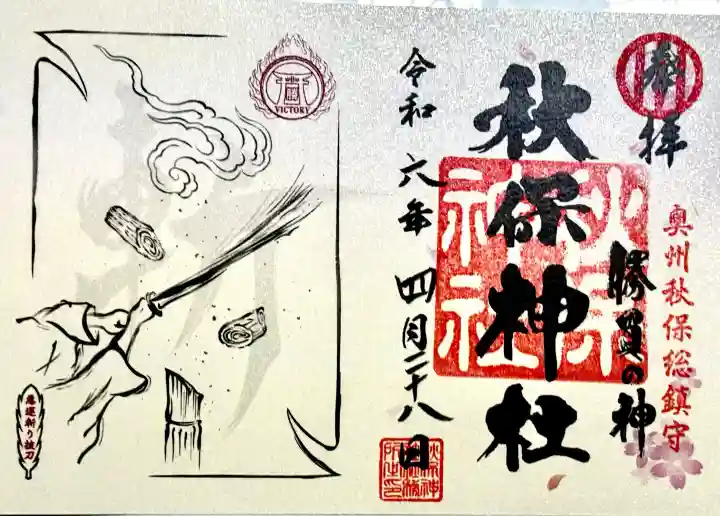 奉拝
奥州秋保総鎮守
勝負の神
秋保神社
秋保神社
令和六年四月二十八日
VICTORY
斬
悪運斬り抜刀